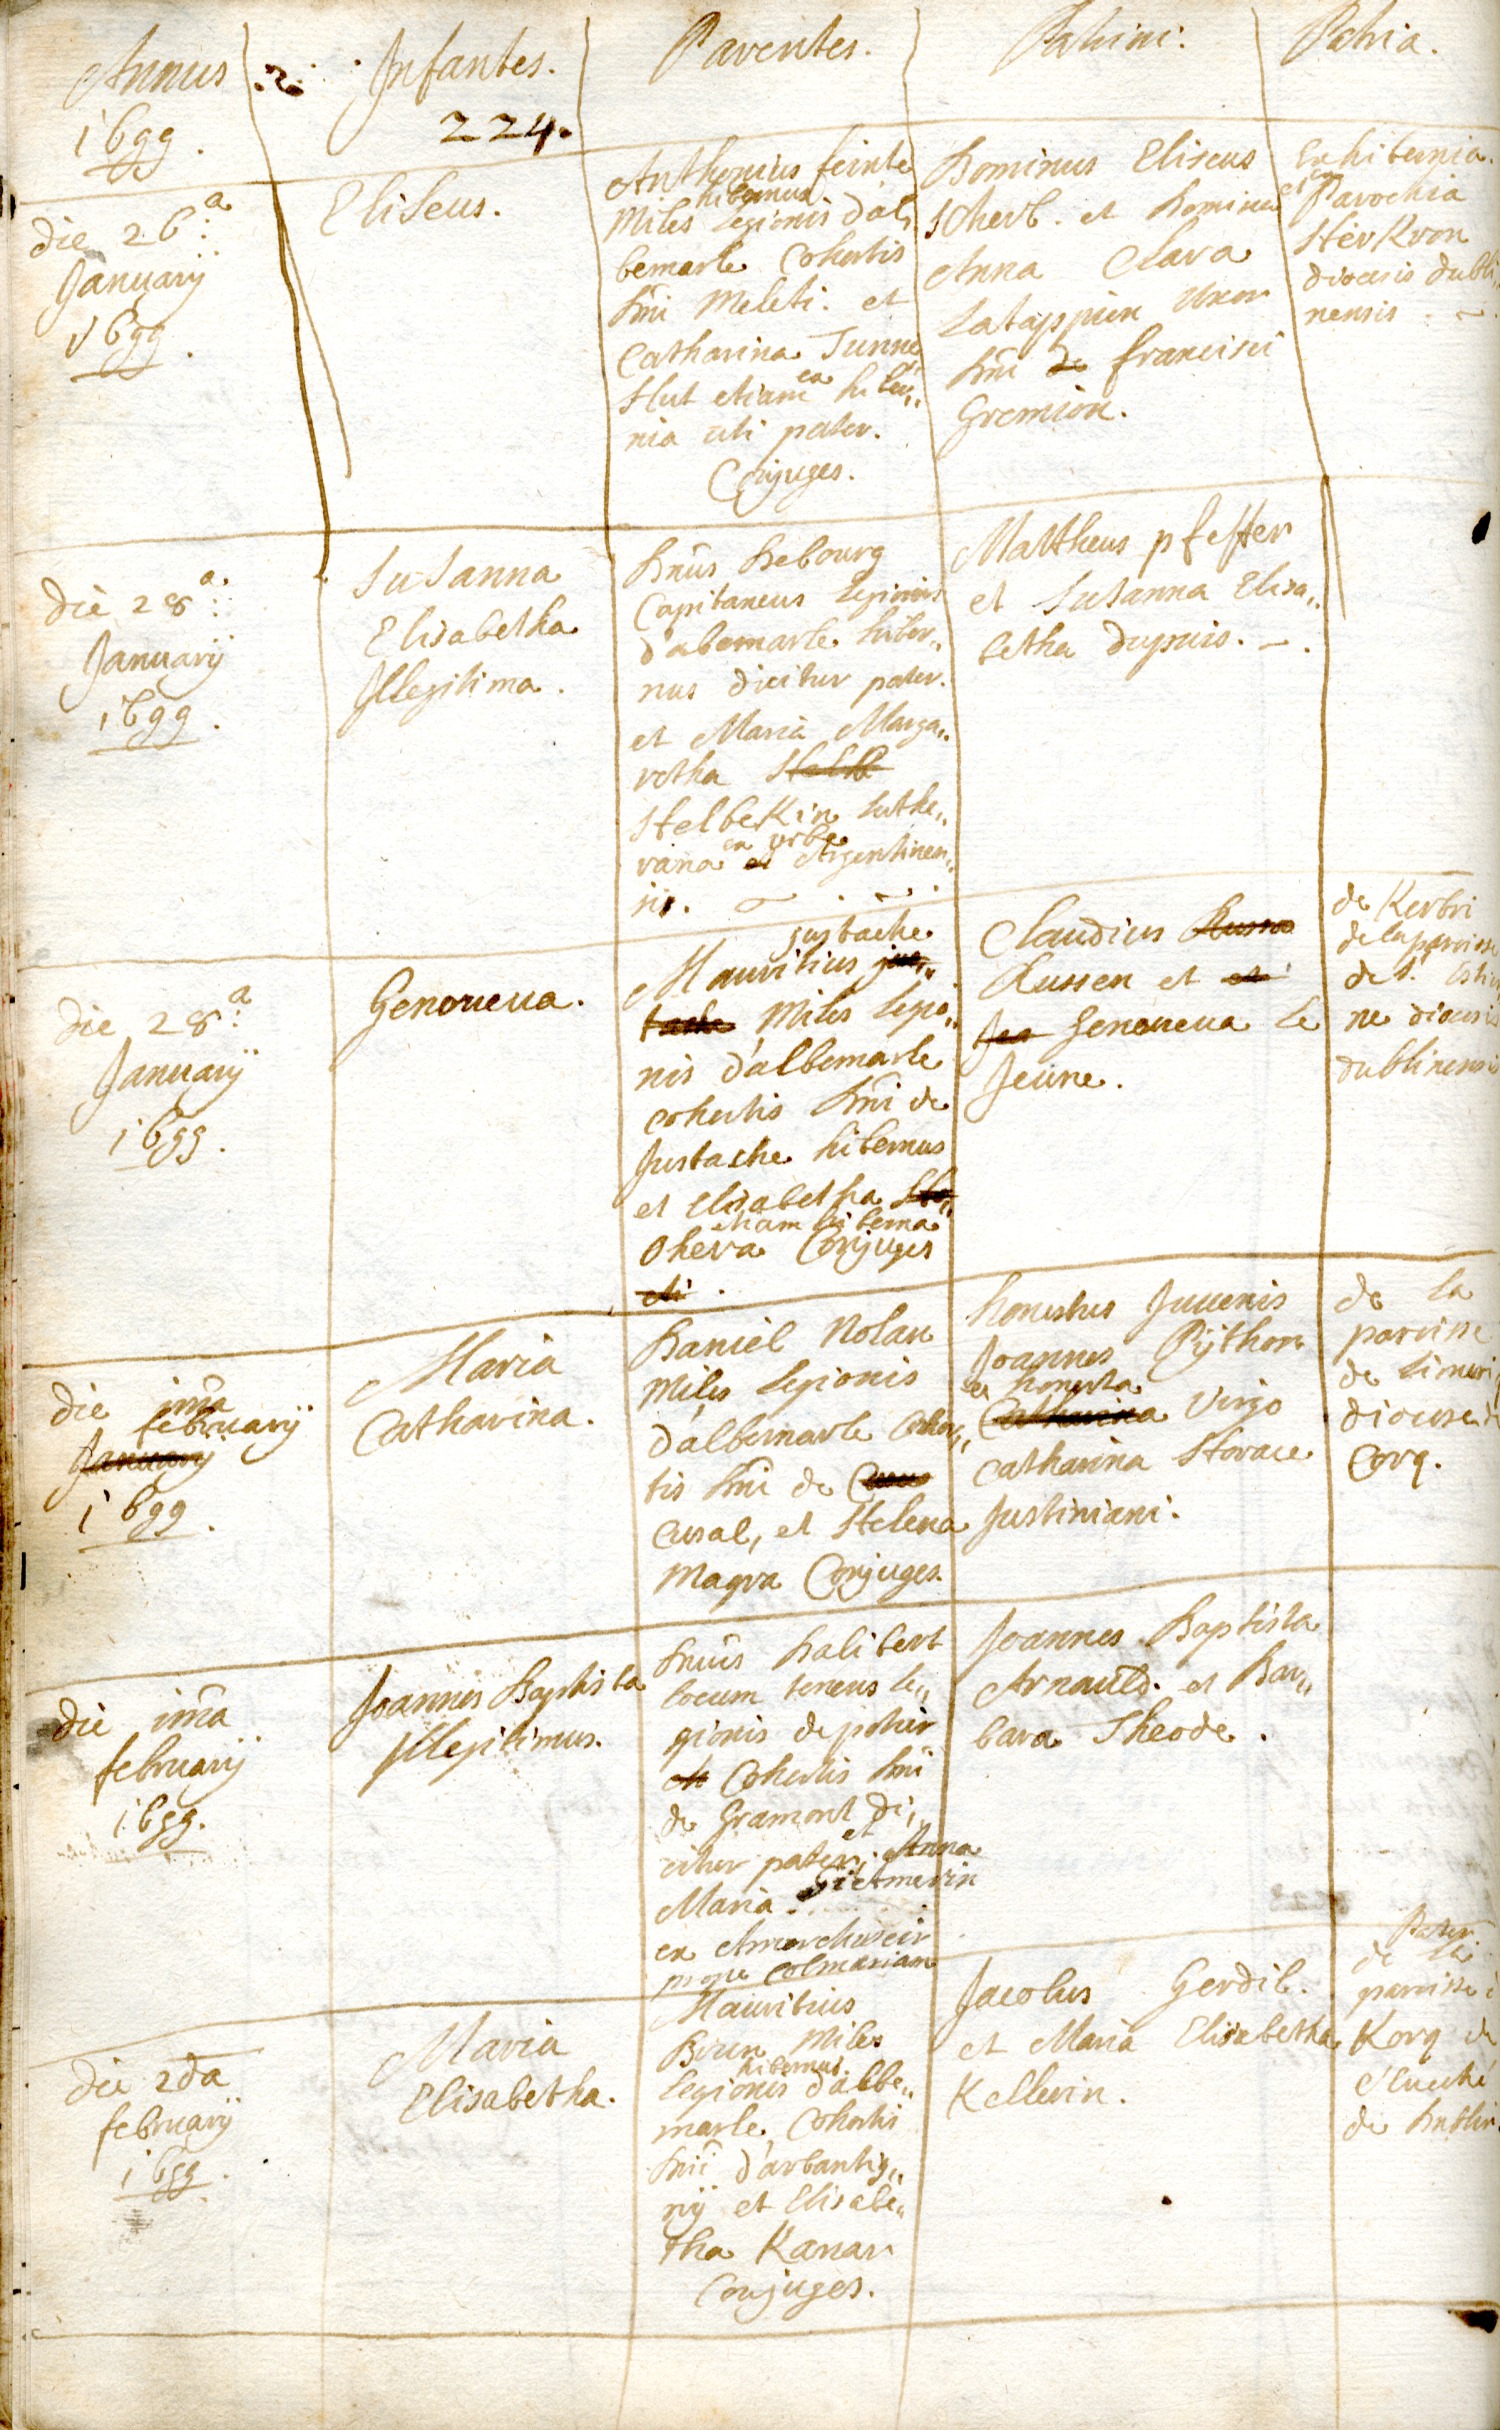 Annus
1699.
.2.
Infantes.
224.
Parentes.
Patrini.
Patria.
die 26a
Januarij
1699.
Eliseus.
Anthonius feinte
hibernus
Miles Legionis d'al,,
bemarle Cohortis
Dni Meleti. et
Catharina Tunne
Slut etiam ex hiber,,
nia uti pater.
Conjuges.
Dominus Eliseus
Scherb. et Domina
Anna Clara
Latappien Uxor
Dni de francisci
Gremion.
Ex hibernia.
Parochia
Sterkron
diocesis dubli,,
nensis.
die 28a
Januarij
1699.
Susanna
Elisabetha
Illegitima.
Dnus Debourg
Capitaneus Legionis
d'abemarle hiber,,
nus dicitur pater.
et Maria Marga,,
retha Stelb
Stelbekin Luthe,,
rana ex urbe Argentinen,,
si.
Mattheus pfeffer
et Susanna Elisa,,
betha dupuis.
die 28a
Januarij
1699.
Genoueua.
justache
Mauritius jus,,
tache Miles Legio,,
nis d'albemarle
cohortis Dni de
Justache hibernus
et Elisabetha
etiam hiberna
Ohera Conjuges
Claudius Russo
Russen et et
Genoueua Le
Jeune.
de Kerbri
de la paroisse
de St. Estien
ne diocesis
dublinensis
die ima
february
January
1699.
Maria
Catharina.
Daniel Nolan
Miles Legionis
d'albemarle Cohor,,
tis Dni de
Cusal, et Helena
Magra Conjuges.
honestus Juuenis
Joannes Pÿthon
et honesta
Catharina Virgo
Catharina Storace
Justiniani.
de La
paroisse
de Limeri
diocese de
Corq.
die ima
february
1699.
Joannes Baptista
Illegitimus.
Dnus Halibert
locum tenens Le,,
gionis de poitir
Cohortis Dni
de Gramont di,,
citur pater, et Anna
Maria Dietmerin
ex
prope Colmariam
Joannes Baptista
Arnauld. et Bar,,
bara Theode.
die 2da
february
1699.
Maria
Elisabetha.
Mauritius
Brun Miles
hibernus
Legionis d'albe,,
marle Cohortis
Dni d'arbantig,,
nij et Elisabe,,
tha Kanar
Conjuges.
Jacobus Gerdil.
et Maria Elisabetha
Kellerin.
Pater
de La
paroisse
Korq de
L'Eueché
de Dublin.